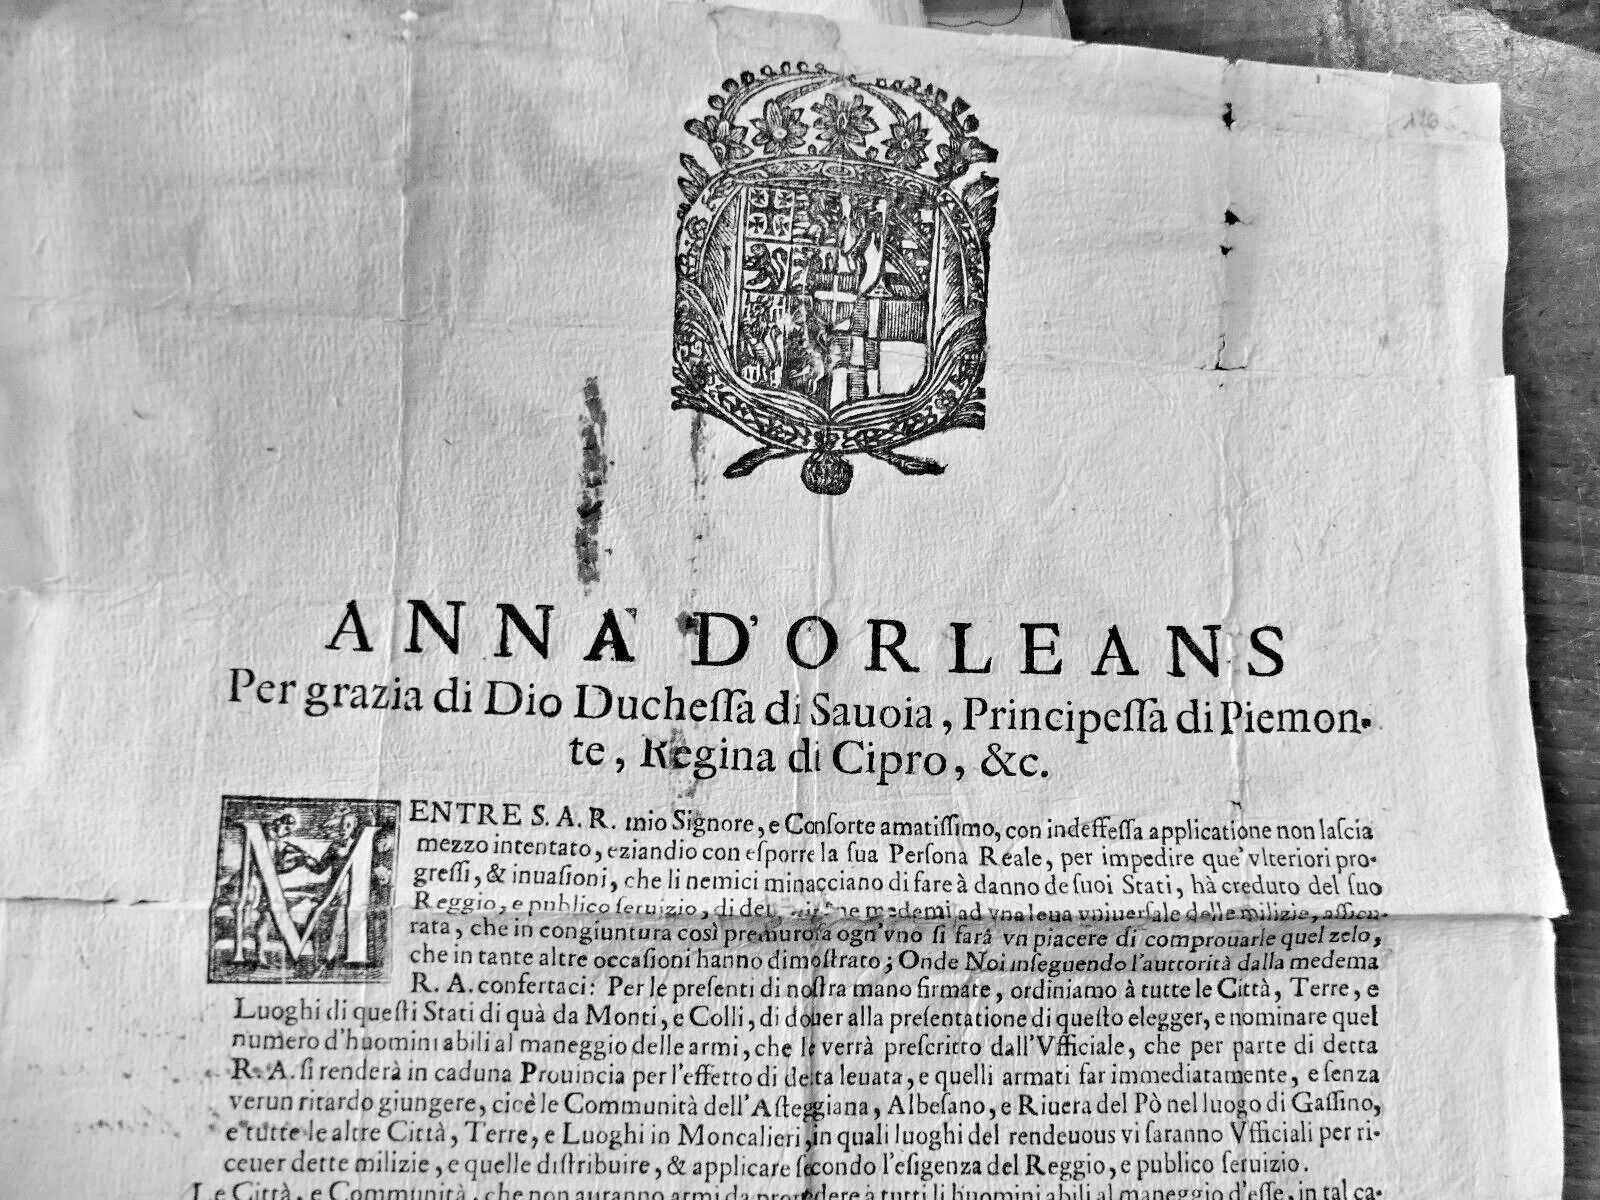 ANNA D'ORLEANS
Per grazia di Dio Ducheſſa di Sauoia, Principeſſa di Piemon-
te, Regina di Cipro, &c.
MENTRE S. A. R. mio Signore, e Conſorte amatiſſimo, con indeffeſſa applicatione non laſcia
mezzo intentato, eziandio con eſporre la ſua Perſona Reale, per impedire que' vlteriori pro-
greſſi, & inuaſioni, che li nemici minacciano di fare à danno de ſuoi Stati, hà creduto del ſuo
Reggio, e publico ſeruizio, di medemi ad vna leua vniuerſale delle milizie, aſſicu-
rata, che in congiuntura così premuroſa ogn'vno ſi farà vn piacere di comprouarle quel zelo,
che in tante altre occaſioni hanno dimoſtrato; Onde Noi inſeguendo l'auttorità dalla medema
R. A. confertaci: Per le preſenti di noſtra mano firmate, ordiniamo à tutte le Città, Terre, e
Luoghi di queſti Stati di quà da Monti, e Colli, di douer alla preſentatione di queſto elegger, e nominare quel
numero d'huomini abili al maneggio delle armi, che le verrà preſcritto dall'Vfficiale, che per parte di detta
R. A. ſi renderà in caduna Prouincia per l'effetto di detta leuata, e quelli armati far immediatamente, e ſenza
verun ritardo giungere, cioè le Communità dell'Aſteggiana, Albeſano, e Riuera del Pò nel luogo di Gaſſino,
e tutte le altre Città, Terre, e Luoghi in Moncalieri, in quali luoghi del rendeuous vi ſaranno Vfficiali per ri-
ceuer dette milizie, e quelle diſtribuire, & applicare ſecondo l'eſigenza del Reggio, e publico ſeruizio.
Le Città, e Communità, che non auranno armi da prouedere à tutti li huomini abili al maneggio d'eſſe, in tal ca-